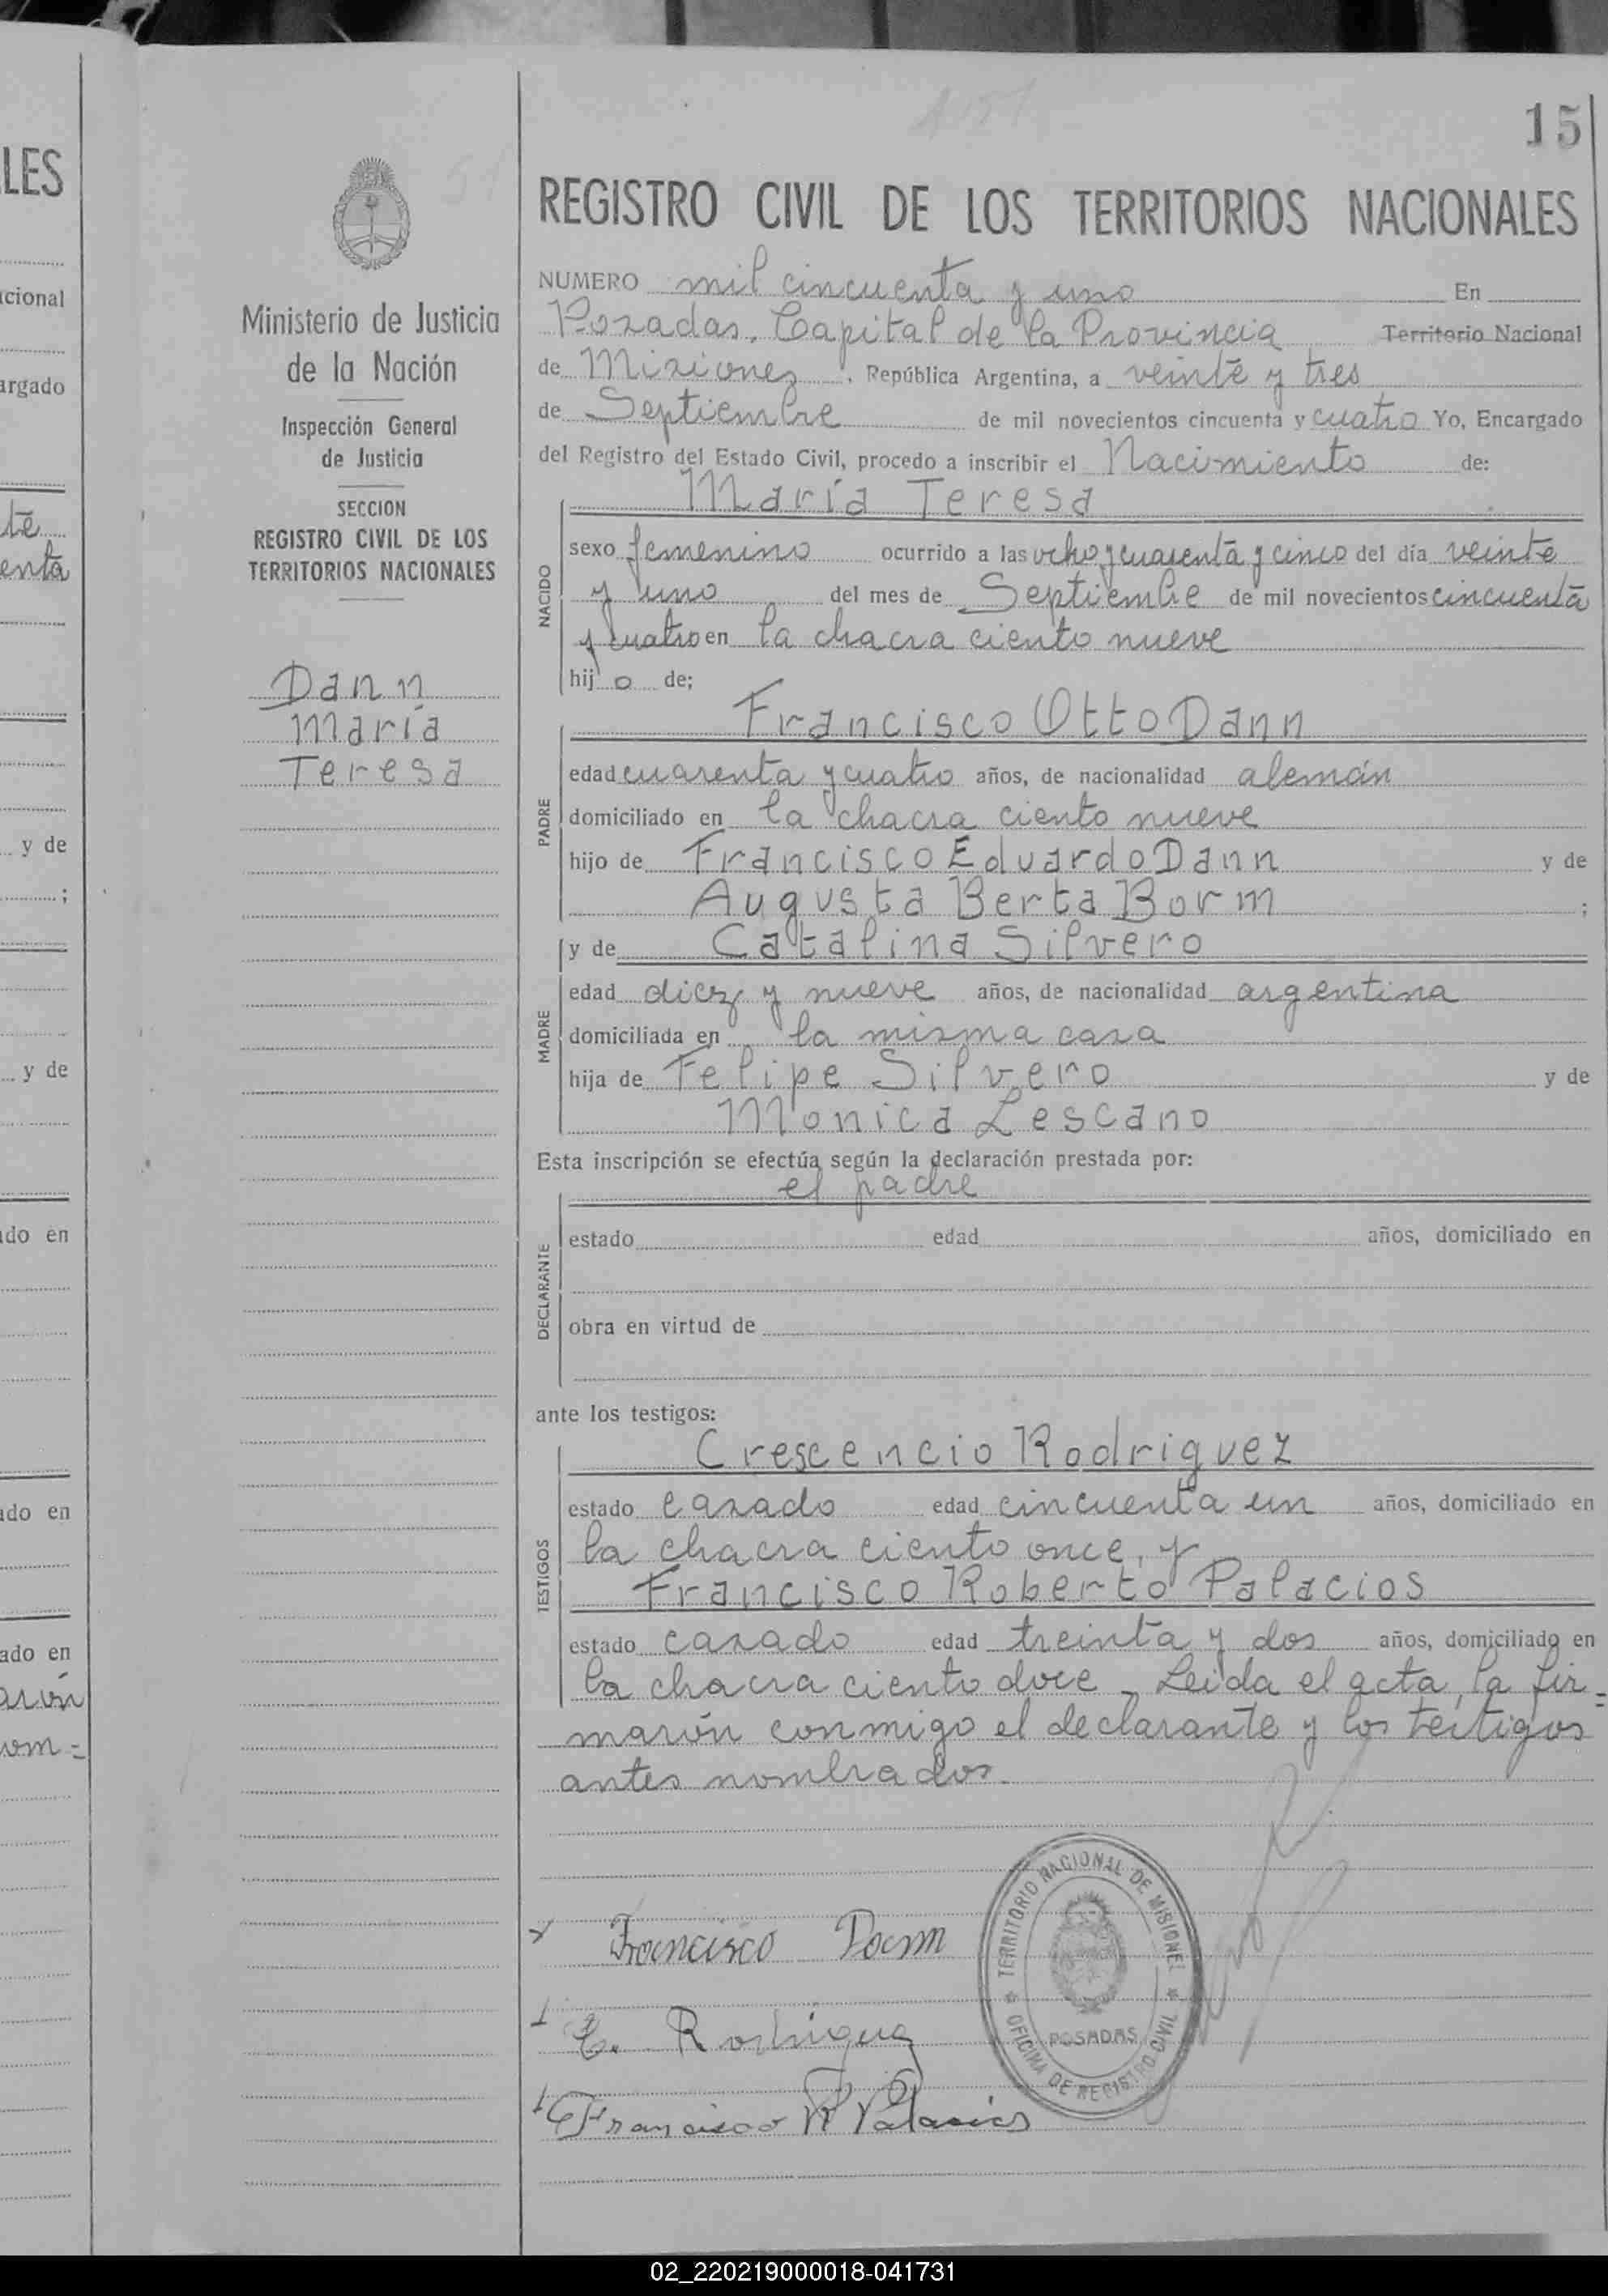 15
LES
cional
argado
te
enta
y de
;
y de
do en
do en
ado en
aron
om=
Ministerio de Justicia
de la Nación
Inspección General
de Justicia
SECCION
REGISTRO CIVIL DE LOS
TERRITORIOS NACIONALES
Dann
María
Teresa
REGISTRO CIVIL DE LOS TERRITORIOS NACIONALES
NUMERO mil cincuenta y uno En
Posadas, Capital de la Provincia Territorio Nacional
de Misiones, República Argentina, a veinte y tres
de Septiembre de mil novecientos cincuenta y cuatro Yo, Encargado
del Registro del Estado Civil, procedo a inscribir el Nacimiento de:
María Teresa
NACIDO
sexo femenino ocurrido a las ocho y cuarenta y cinco del día veinte
y uno del mes de Septiembre de mil novecientos cincuenta
y cuatro en la chacra ciento nueve
hijo de;
Francisco Otto Dann
PADRE
edad cuarenta y cuatro años, de nacionalidad alemán
domiciliado en la chacra ciento nueve
hijo de Francisco Eduardo Dann y de
Augusta Berta Borm ;
y de Catalina Silvero
MADRE
edad diez y nueve años, de nacionalidad argentina
domiciliada en la misma casa
hija de Felipe Silvero y de
Monica Lescano
Esta inscripción se efectúa según la declaración prestada por:
el padre
DECLARANTE
estado edad años, domiciliado en
obra en virtud de
ante los testigos:
Crescencio Rodriguez
TESTIGOS
estado casado edad cincuenta un años, domiciliado en
la chacra ciento once, y
Francisco Roberto Palacios
estado casado edad treinta y dos años, domiciliado en
la chacra ciento doce - Leida el acta, la fir=
marón conmigo el declarante y los testigos
antes nombrados.
TERRITORIO NACIONAL DE MISIONES
POSADAS
OFICINA DE REGISTRO CIVIL
Francisco Dann
C. Rodriguez
Francisco R Palacios
02_220219000018-041731